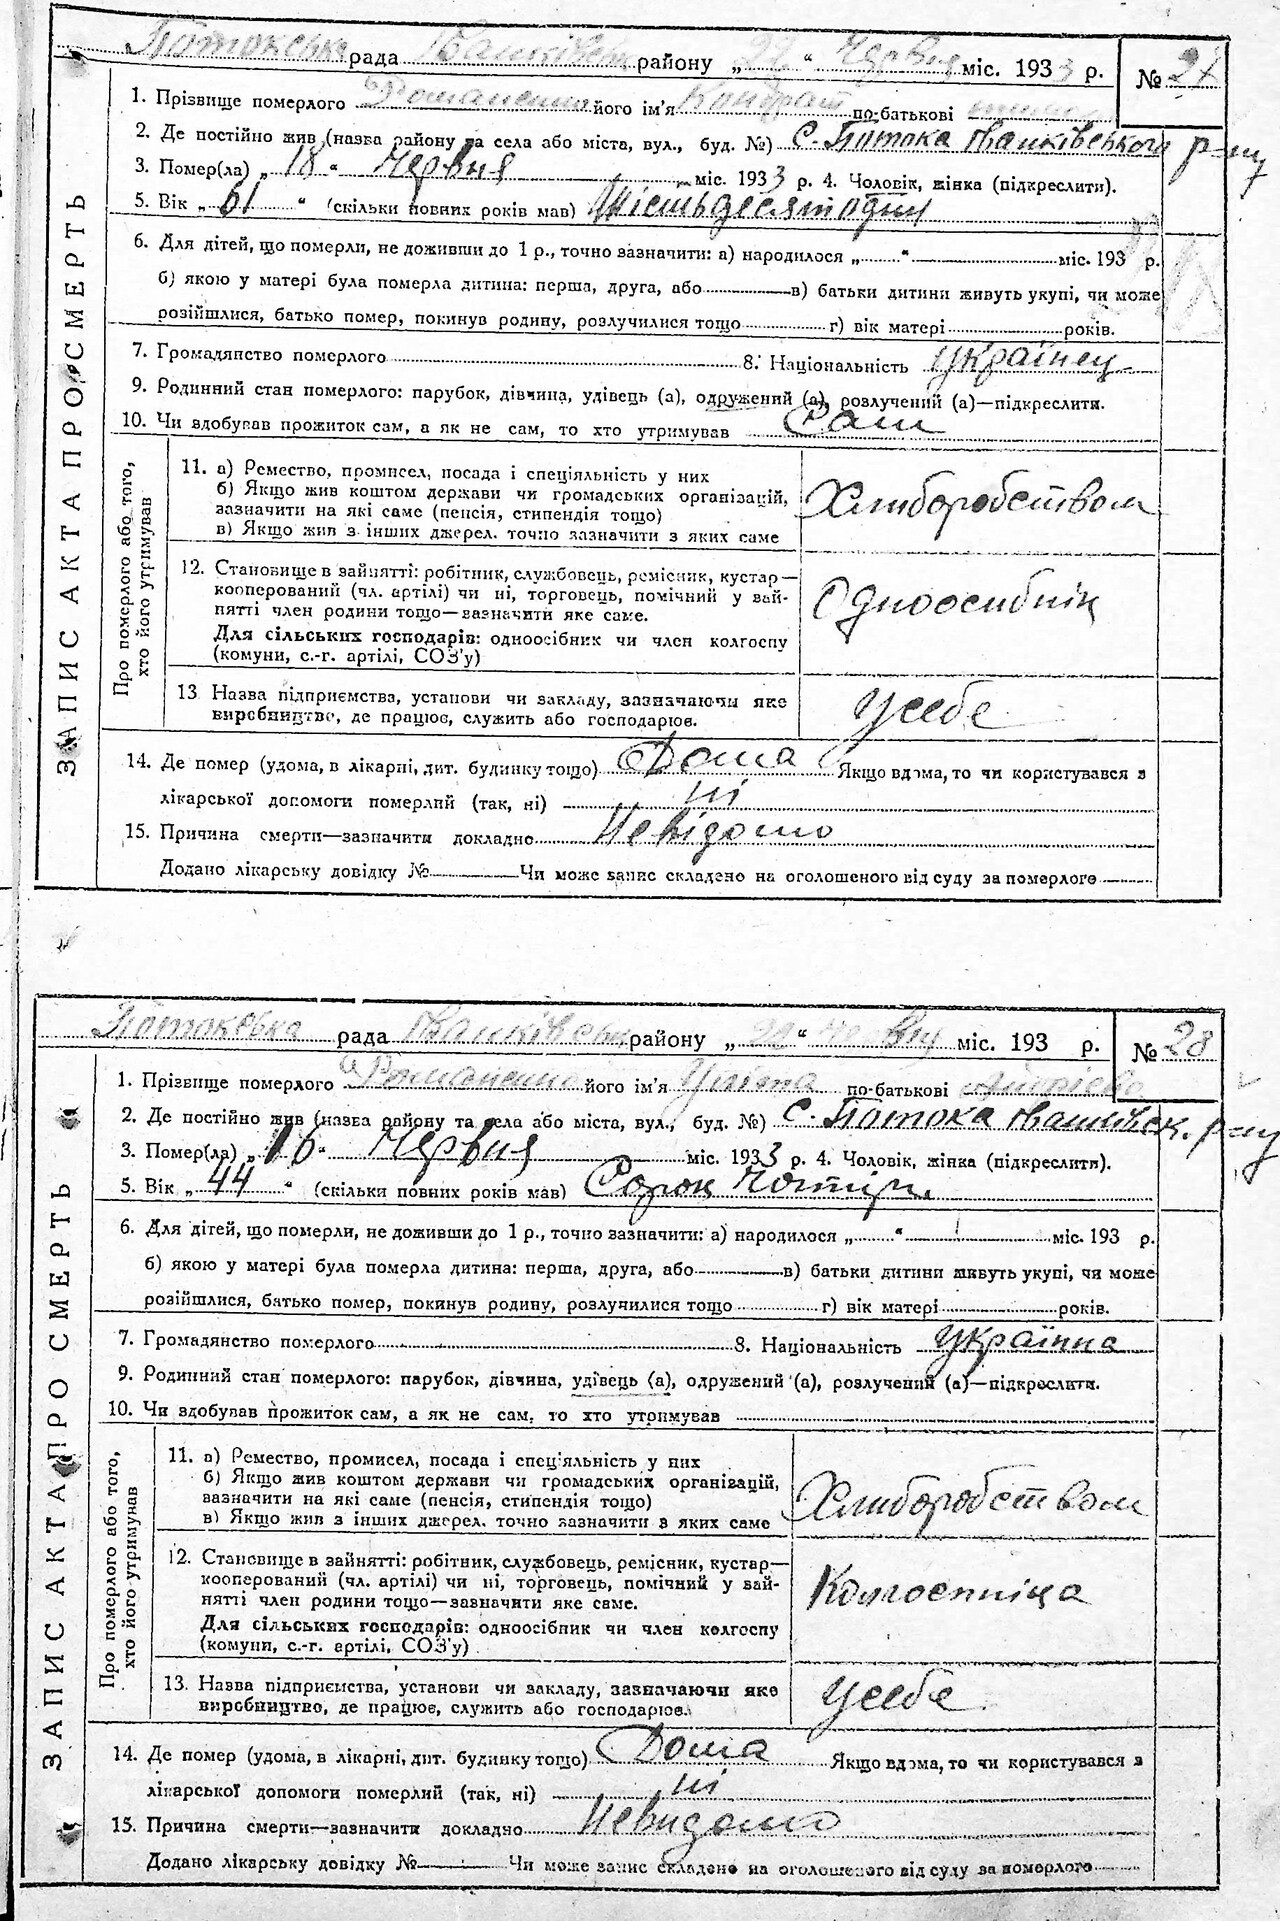 Потокська рада Іванківськ району „22“ Червня міс. 1933 р. № 27
1. Прізвище померлого Романенко його ім'я Кондрат по-батькові
2. Де постійно жив (назва району та села або міста, вул., буд. №) с. Потока Іванківського р-ну
3. Помер(ла) „18“ Червня міс. 1933 р. 4. Чоловік, жінка (підкреслити).
5. Вік „61“ (скільки повних років мав) Шістьдесят один
6. Для дітей, що померли, не доживши до 1 р., точно зазначити: а) народилося „ “ міс. 193 р.
б) якою у матері була померла дитина: перша, друга, або в) батьки дитини живуть укупі, чи може
розійшлися, батько помер, покинув родину, розлучилися тощо г) вік матері років.
7. Громадянство померлого 8. Національність українец
9. Родинний стан померлого: парубок, дівчина, удівець (а), одружений (а), розлучений (а)—підкреслити.
10. Чи здобував прожиток сам, а як не сам, то хто утримував Сам
ЗАПИС АКТА ПРО СМЕРТЬ
Про померлого або того, хто його утримував
11. а) Ремество, промисел, посада і спеціяльність у них
б) Якщо жив коштом держави чи громадських організацій,
зазначити на які саме (пенсія, стипендія тощо)
в) Якщо жив з інших джерел. точно зазначити з яких саме
Хлиборобством
12. Становище в зайнятті: робітник, службовець, ремісник, кустар—
кооперований (чл. артілі) чи ні, торговець, помічний у зай-
нятті член родини тощо—зазначити яке саме.
Для сільських господарів: одноосібник чи член колгоспу
(комуни, с.-г. артілі, СОЗ'у)
Одноосибнік
13 Назва підприємства, установи чи закладу, зазначаючи яке
виробництво, де працює, служить або господарює.
усебе
14. Де помер (удома, в лікарні, дит. будинку тощо) Дома Якщо вдома, то чи користувався з
лікарської допомоги померлий (так, ні) ні
15. Причина смерти—зазначити докладно Невідомо
Додано лікарську довідку № Чи може запис складено на оголошеного від суду за померлого
Потоковка рада Іванківськ району „22“ червня міс. 193 р. № 28
1. Прізвище померлого Романенко його ім'я Уліта по-батькові
2. Де постійно жив (назва району та села або міста, вул., буд. №) с. Потока Іванківск. р-ну
3. Помер(ла) „16“ Червня міс. 1933 р. 4. Чоловік, жінка (підкреслити).
5. Вік „44“ (скільки повних років мав) Сорок Чотири
6. Для дітей, що померли, не доживши до 1 р., точно зазначити: а) народилося „ “ міс. 193 р.
б) якою у матері була померла дитина: перша, друга, або в) батьки дитини живуть укупі, чи може
розійшлися, батько помер, покинув родину, розлучилися тощо г) вік матері років.
7. Громадянство померлого 8. Національність українка
9. Родинний стан померлого: парубок, дівчина, удівець (а), одружений (а), розлучений (а)—підкреслити.
10. Чи здобував прожиток сам, а як не сам, то хто утримував
ЗАПИС АКТА ПРО СМЕРТЬ
Про померлого або того, хто його утримував
11. а) Ремество, промисел, посада і спеціяльність у них
б) Якщо жив коштом держави чи громадських організацій,
зазначити на які саме (пенсія, стипендія тощо)
в) Якщо жив з інших джерел. точно зазначити з яких саме
Хлиборобством
12. Становище в зайнятті: робітник, службовець, ремісник, кустар—
кооперований (чл. артілі) чи ні, торговець, помічний у зай-
нятті член родини тощо—зазначити яке саме.
Для сільських господарів: одноосібник чи член колгоспу
(комуни, с.-г. артілі, СОЗ'у)
Колгоспніца
13. Назва підприємства, установи чи закладу, зазначаючи яке
виробництво, де працює, служить або господарює.
усебе
14. Де помер (удома, в лікарні, дит. будинку тощо) Дома Якщо вдома, то чи користувався з
лікарської допомоги померлий (так, ні) ні
15. Причина смерти—зазначити докладно Невидомо
Додано лікарську довідку № Чи може запис складено на оголошеного від суду за померлого